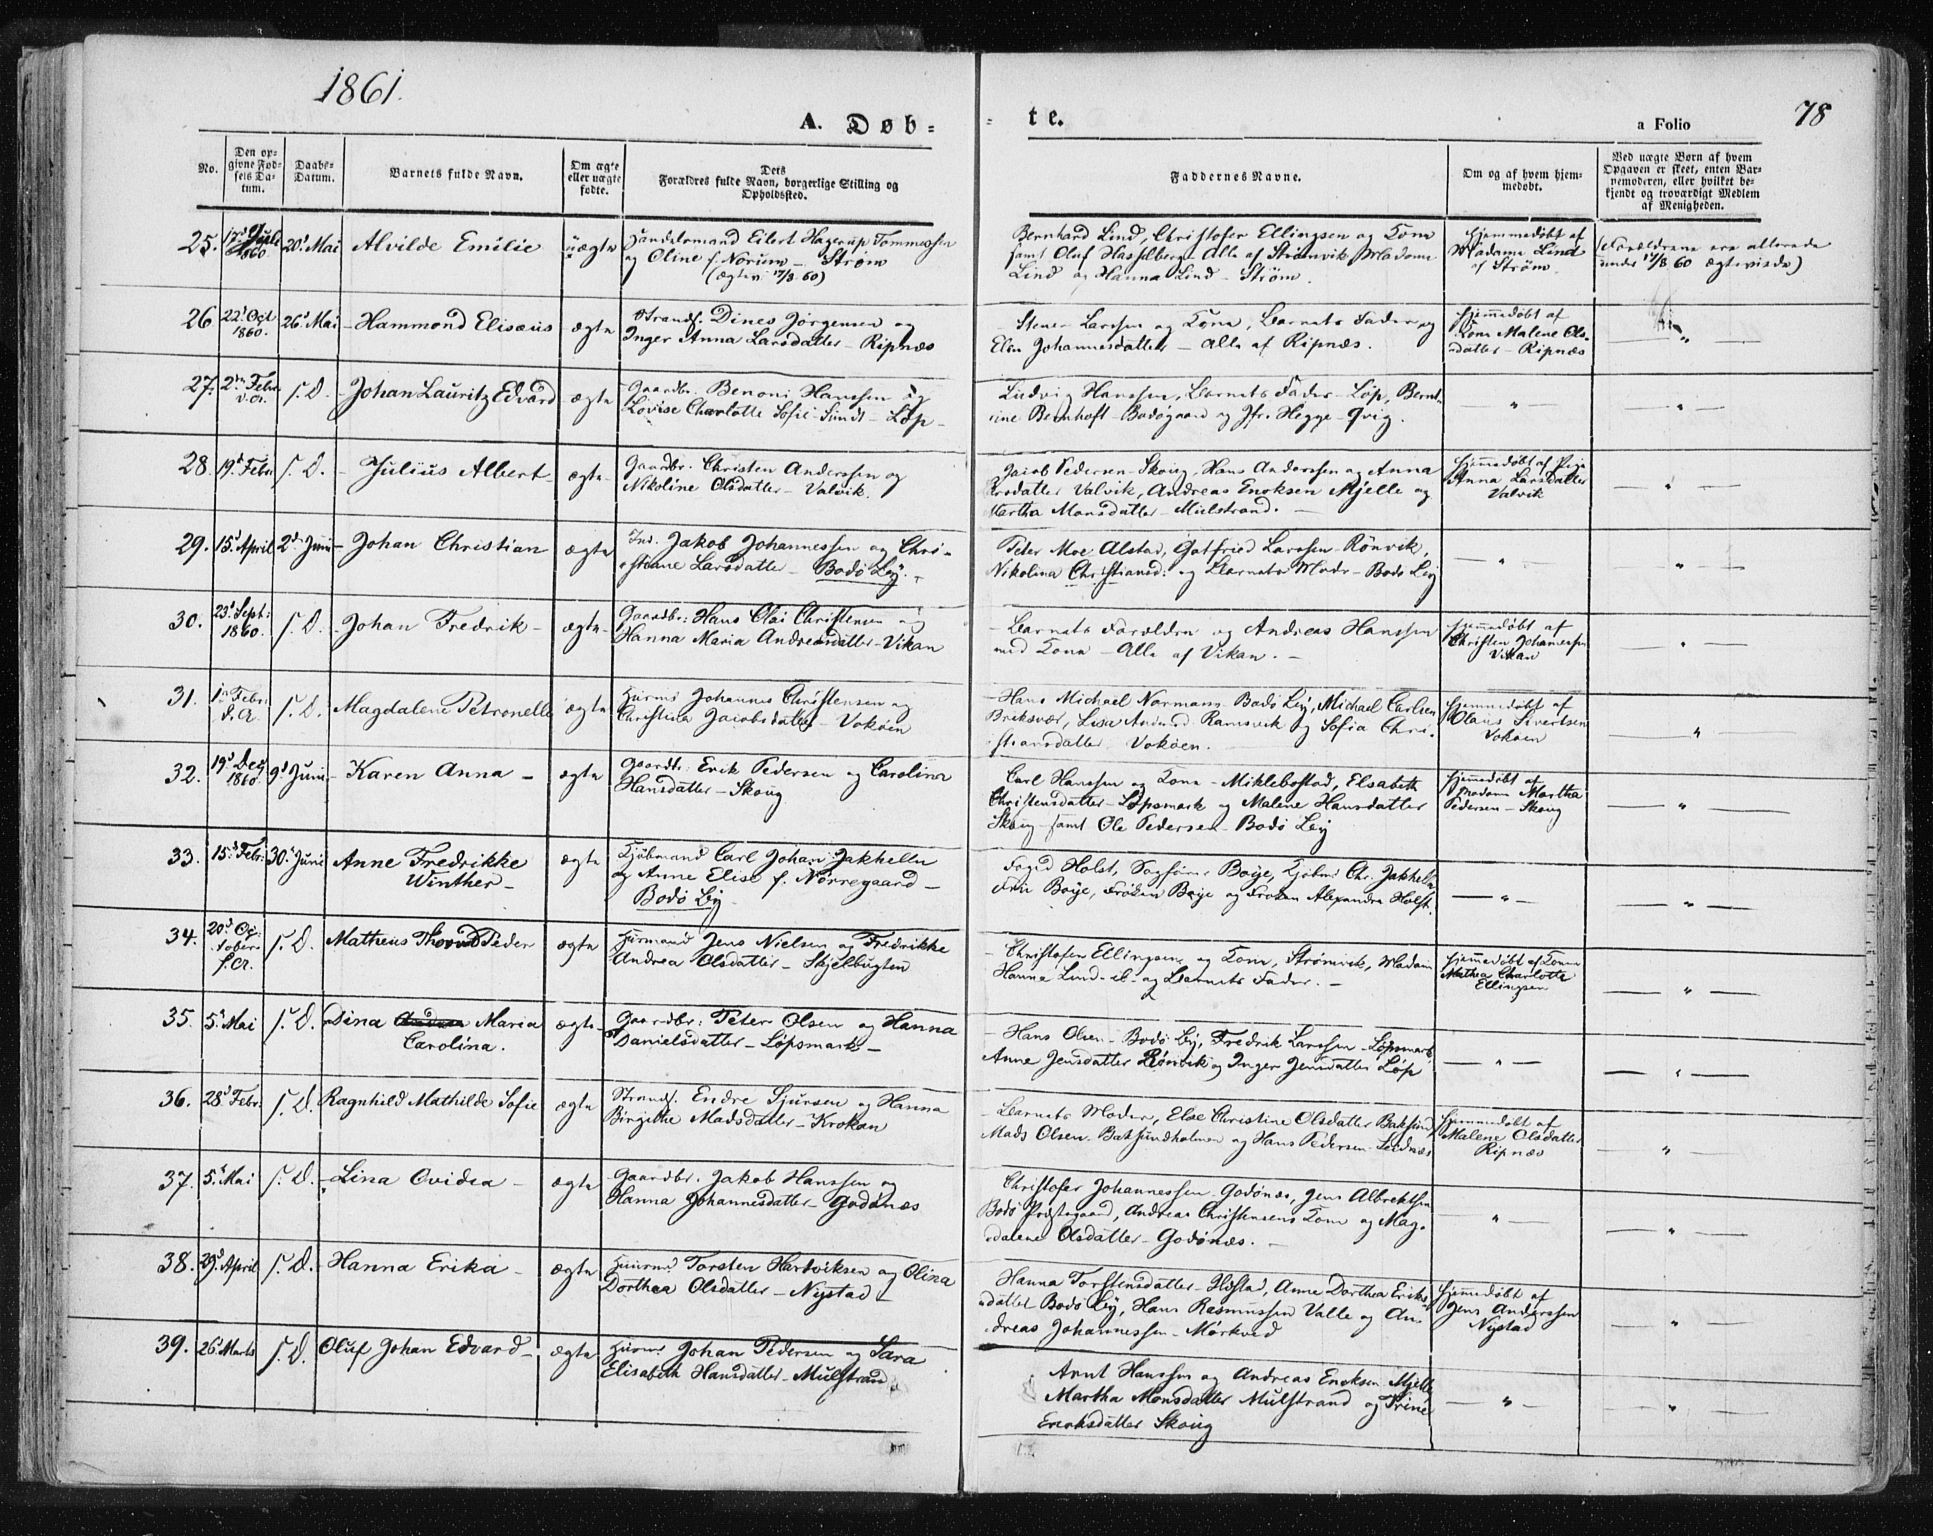 1861.
78
A. Døb-
te.
a Folio
No.
Den op-
givne Fød-
sels Da-
tum.
Daabs-
Datum.
Barnets fulde Navn.
Om ægte
eller uægte
fødte.
Dets
Forældres fulde Navn, borgerlige Stilling og
Opholdssted.
Faddernes Navne.
Om og af hvem hjem-
medøbt.
Ved uægte Børn af hvem
Opgaven er skeet, enten Bar-
nemoderen, eller hvilket be-
kjendt og troværdigt Medlem
af Menigheden.
25. 1860. 20d Mai Alvilde Emilie uægte
Handelsmand Eilert Hagerup Tommessen
og Oline f. Norum - Strøm
(ægtev. 17/8 60)
Bernhard Lind, Christofer Ellingsen og Kone
samt Oluf Hasselberg - Alle af Strømvik Madame
Lind og Hanna Lind - Strøm.
Hjemmedøbt af
Madame Lind
af Strøm.
(Forældrene ere allerede
under 17/8 60 ægteviede)
26 22d Oct 1860. 26d Mai - Hammond Elisæus ægte
Strands. Dines Jørgensen og
Inger Anna Larsdatter - Ripnæs
Stener Larssen og Kone, Barnets Fader og
Elen Johannesdatter - Alle af Ripnæs.
Hjemmedøbt af
Kone Malene Ols-
datter - Ripnæs
— " —
27. 2den Febr. d. A. s. D. - Johan Lauritz Edvard ægte
Gaardbr. Benoni Hanssen og
Lovise Charlotte Sofie Sundt - Løp -
Ludvig Hanssen, Barnets Fader - Løp, Bernt-
ine Bernhoft - Bodøgaard og Jfr. Hegge - Qvig.
— " —
— " —
28. 19d Febr. s. D. - Julius Albert - ægte
Gaardbr. Christen Anderssen og
Nikoline Olsdatter - Valvik.
Jacob Pedersen - Skoug, Hans Anderssen og Anna
Larsdatter Valvik, Andreas Enoksen Mjelle og
Martha Monsdatter - Mulstrand. -
Hjemmedøbt af Pige
Anna Larsdatter
Valvik
— " —
29. 15d April 2d Juni - Johan Christian ægte
Ind. Jakob Johannessen og Chri-
stiane Larsdatter - Bodø Bÿ. -
Peter Moe Alstad, Gotfried Larssen - Rønvik,
Nikolina Christiansd. og Barnets Moder - Bodø Bÿ
— " —
— " —
30. 23d Sept: 1860. s. D. - Johan Fredrik - ægte -
Gaardbr: Hans Olai Christensen og
Hanna Maria Andreasdatter - Vikan
- Barnets Forældre og Andreas Hanssen
med Kone - Alle af Vikan. -
Hjemmedøbt af
Christen Johannessen
Vikan
— " —
31. 1n Febr. d. A. s. D. Magdalene Petronelle ægte
Huusmd Johannes Christensen og
Christina Jacobsdatter - Vokøen
- Hans Michael Normann Bodø Bÿ, Michael Carlsen
Briksvær, Lisa Andersd. Ramsvik og Sofia Chri-
stiansdatter Vokøen.
Hjemmedøbt af
Olaus Sivertsen
Vokøen
— " —
32. 19d Dec 1860. 9d Juni - Karen Anna - ægte
Gaardb: Erik Pedersen og Caroline
Hansdatter - Skoug
Carl Hanssen og Kone - Miklebostad, Elsabeth
Christensdatter - Løpsmark og Malene Hansdatter
Skoug - samt Ole Pedersen - Bodø Bÿ
Hjemmedøbt af
Madame Martha
Pedersen - Skoug
— " —
33. 15d Febr. 30d Juni Anne Fredrikke
Winther - ægte
Kjøbmand Carl Johan Jakhelln
og Anne Elise f. Nørregaard -
Bodø Bÿ -
Foged Holst, Sagfører Boije, Kjøbmd Chr. Jakhelln
Fru Boije, Frøken Boije og Frøken Alexandra Holst.
— " —
— " —
34. 20d October f. A. s. D. Matheus Thorvd Peder ægte
Huusmand Jens Nielsen og Fredrikke
Andrea Olsdatter - Skjelbugten
- Christofer Ellingsen og Kone, Strømvik, Madam
Hanna Lind - og Barnets Fader. -
Hjemmedøbt af Konen
Mathea Charlotte
Ellingsen
— " —
35. 5d Mai s. D. Dina Maria
Carolina. ægte -
Gaardbr: Peter Olsen og Hanna
Danielsdatter - Løpsmark -
- Hans Olsen - Bodø Bÿ, Fredrik Larssen - Løpsmark
Anne Jensdatter Rønvik og Inger Jensdatter Løp
— " —
— " —
36. 28d Febr. s. D. Ragnhild Mathilde Sofie ægte
Strands. Endre Sjursen og Hanna
Birgithe Madsdatter - Krokan
- Barnets Moder, Else Christine Olsdatter Baksund
Mads Olsen Baksundholmen og Hans Pedersen - Seidnæs
Hjemmedøbt af
Malene Olsdatter
Ripnæs
— " —
37. 5d Mai s. D. - Lina Ovidia - ægte
Gaardbr. Jakob Hanssen og
Hanna Johannesdatter - Godønæs
Christofer Johannessen - Godønæs, Jens Albrektsen
Bodø Præstegaard, Andreas Christensens Kone og Mag-
dalene Olsdatter - Godønæs. -
— " —
— " —
38. 29d April s. D. - Hanna Erika - ægte
Huusmd Torsten Hartviksen og Olina
Dorthea Olsdatter - Nystad -
Hanna Torstensdatter - Nystad, Anne Dorthea Eriks-
datter Bodø Bÿ, Hans Rasmussen Valle og An-
dreas Johannessen - Mørkved
Hjemmedøbt af
Jens Anderssen
Nystad
— " —
39. 26d Marts s. D. Oluf Johan Edvard - ægte
Huusmd Johan Pedersen og Sara
Elisabeth Hansdatter - Mulstrand
Arnt Hanssen og Andreas Enoksen - Mjelle
Martha Monsdatter Mulstrand og Trine
Enoksdatter Skoug
— " —
— " —